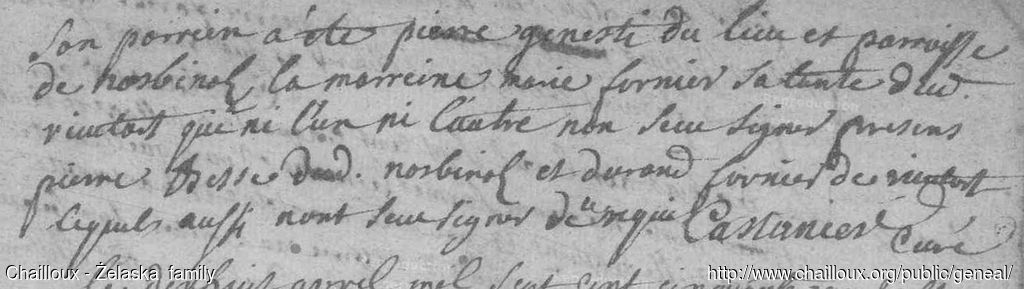 son parrein a été pierre genesti du lieu et parroisse
de norbinal, la marreine marie fornier sa tente dud.
que ni l'un ni l'autre non seu signer presens
pierre Besse dud. norbinal et durand fornier de
lequels aussi n'ont seu signer de ce requis Castanier Curé
Chailloux - Żelaska family
http://www.chailloux.org/public/geneal/
avril mil sept cent cinquante